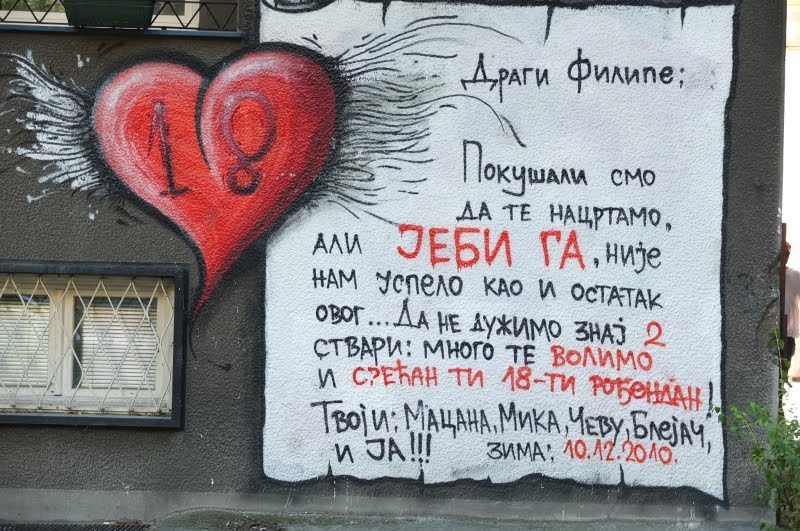 18
Драги Филипе;
Покушали смо
да те нацртамо,
али ЈЕБИ ГА, није
нам успело као и остатак
овог...Да не дужимо знај 2
ствари: много те волимо
и срећан ти 18-ти рођендан!
Твоји: Мацана, Мика, Чеву, Блејач,
и ЈА!!! зима: 10.12.2010.